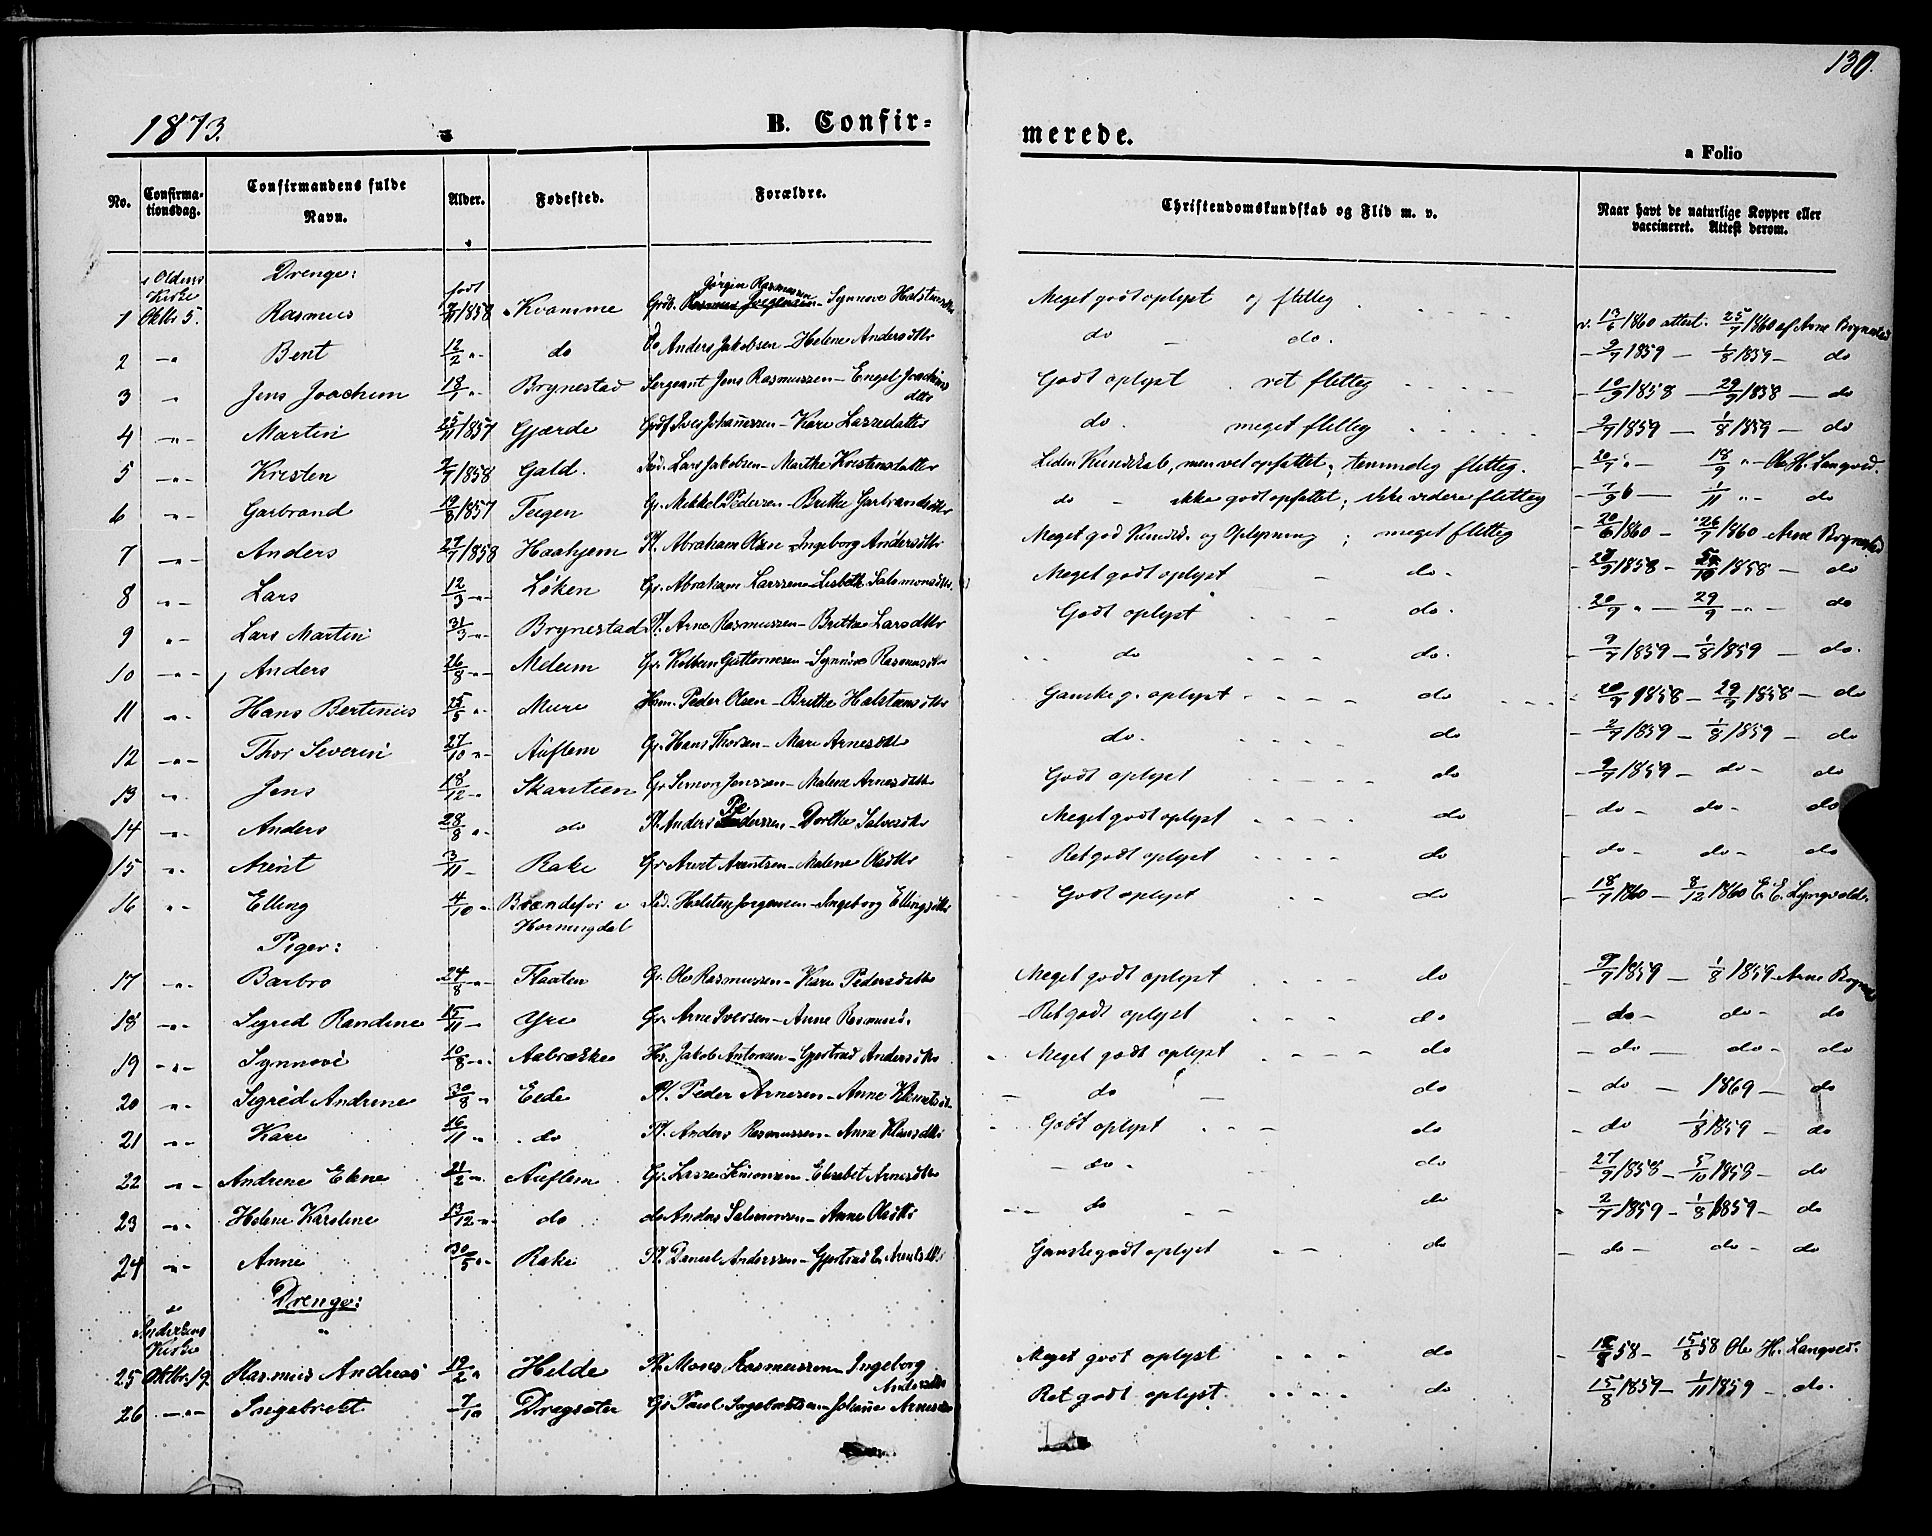 130.
1873. B. Confir= merede.
a Folio
No. Confirma-tionsdag. Confirmandens fulde Navn. Alder. Fødested. Forældre. Christendomskundskab og Flid m. v. Naar havt de naturlige Kopper eller vaccineret. Attest derom.
i Oldens Kirke Drenge: født Jørgen Rasmussen
1 Oktbr 5. Rasmus 1858 Kvamme Synnøve Meget godt oplyst og flittig v. 13/6 1860 attest. 25/7 1860 af Arne Brynestad
2 -"- Bent 12/2 "- do Do Anders Jakobsen - Helene Andersdtr do - do. - 9/7 1859 - 1/8 1859 - do
3 " Jens Joachim 18/1 "- Brynestad Sergeant Jens Rasmussen - Engel Joachimsdtr Godt oplyst . ret flittig - 10/9 1858 - 29/9 1858 - do
4 -"- Martin 25/11 1857 Gjærde Iver Johannessen - Kari Lassedatter do. meget flittig - 9/7 1859 - 1/8 1859 - do
5 -"- Kristen 1858 Gald. Lars Jakobsen - Marthe Kristensdatter Liden Kundskab, men vel opfattet; temmelig flittig. - 20/7 "- 18/9 "- Ole H. Langved.
6 -"- Garbrand 19/8 1857 Teigen Gr. Mikkel Pedersen - Brithe Garbrandsdtr do - ikke godt opfattet; ikke videre flittig - 7/9 - 1/11 "- do
7 -"- Anders 27/7 1858 Haahjem Pl. Abraham Olsen - Ingeborg Andersdtr Meget god Kundsk. og Oplysning ; meget flittig - 20/6 1860 - 26/7 1860 - Arne Brynestad
8 "- Lars 12/3 -"- Løken Gr. Abraham Larssen - Lisbeth Salomonsdtr. Meget godt oplyst - do. 1858 - 1858 - do
9 "- Lars Martin 31/3 "- Brynestad Pl. Arne Rasmussen - Brithe Larsdtr Godt oplyst do. 20/9 " - 29/9 -"- do
10 -"- Anders 26/8 "- Melem Gr. Kolbein Guttormsen - Synnøve Rasmusdtr do - - - do. - 9/7 1859 - 1/8 1859 - do.
11 "- Hans Bertinus 25/5 "- Mure Hsm. Peder Olsen - Brithe Halstensdtr Ganske g. oplyst - - - do - 20/9 1858 - 29/9 1858 - do
12 -"- Thor Severin 27/10 "- Auflem Gr. Hans Thorsen - Mari Arnesdtr do. - - - do - 2/7 1859 - 1/8 1859 - do
13 "- Jens 18/12 "- Skarsteen Gr Simon Jenssen - Malene Arnesdtr Godt oplyst - - - do - 9/7 1859 - do - do
14 -"- Anders 28/8 "- do Pl. Anders Pederssen - Dorthe Meget godt oplyst - - - do - do - do - do
15 "- Arent 3/11 - Rake Gr Arent Arentsen - Malene Olsdtr Ret godt oplyst - - - do - do - do - do
16 "- Elling 4/10 "- i Hornindal Halsten Jørgensen - Ingeborg Ellingsdtr Godt oplyst - - do - 18/7 1860 - 8/12 1860 E. E. Lyngvold.
Piger:
17 "- Barbro 24/8 "- Flaaten Gr. Ole Rasmussen - Kari Pedersdatter Meget godt oplyst - - - do - 9/7 1859 - 1/8 1859 - Arne
18 "- Sigrid Randine 15/11 - Yri Gr. Arne Iversen - Anne Rasmusd. Ret godt oplyst - - - do - do - do - do
19 -"- Synnøve 10/8 -"- Aabrække Hsm. Jakob Antonsen - Gjertrud Andersdtr Meget godt oplyst - - - do - do - do - do
20 "- Sigrid Andrine 30/8 "- Eide Pl. Peder Arnesen - Anne - do - do - do - 1869 - do
21 -"- Kari 16/11 "- do Pl. Anders Rasmussen - Anne Godt oplyst - - - do - do 1/8 1859 - do
22 -"- Andrine Eline 21/2 "- Auflem Gr. Lasse Simonsen - Elisabet Arnesdtr - do - do - 27/9 1858 - 5/10 1858 - do
23 -"- Helene Karoline 13/12 "- do do Anders Salomonsen - Anne Olsdtr - do - - do - 2/7 1859 - 1/8 1859 - do
24 -"- Anne 30/5 "- Rake Pl. Daniel Anderssen - Gjertrud Ganske godt oplyst - - do - do - do - do
Drenge:
i Indvikens Kirke
25 Oktbr 19. Rasmus Andreas 19/2 " Helde Pl. Moses Rasmussen - Ingeborg Andersdtr Meget godt oplyst - - - do 58 - 15/8 58 Ole H. Langved.
26 -"- Ingebrett 7/10 Dregsæter Gr Poul Ingebrettsen - Johanne Arnesdtr Ret godt oplyst. - - - do 15/8 1859 - 1/11 1859 - do.